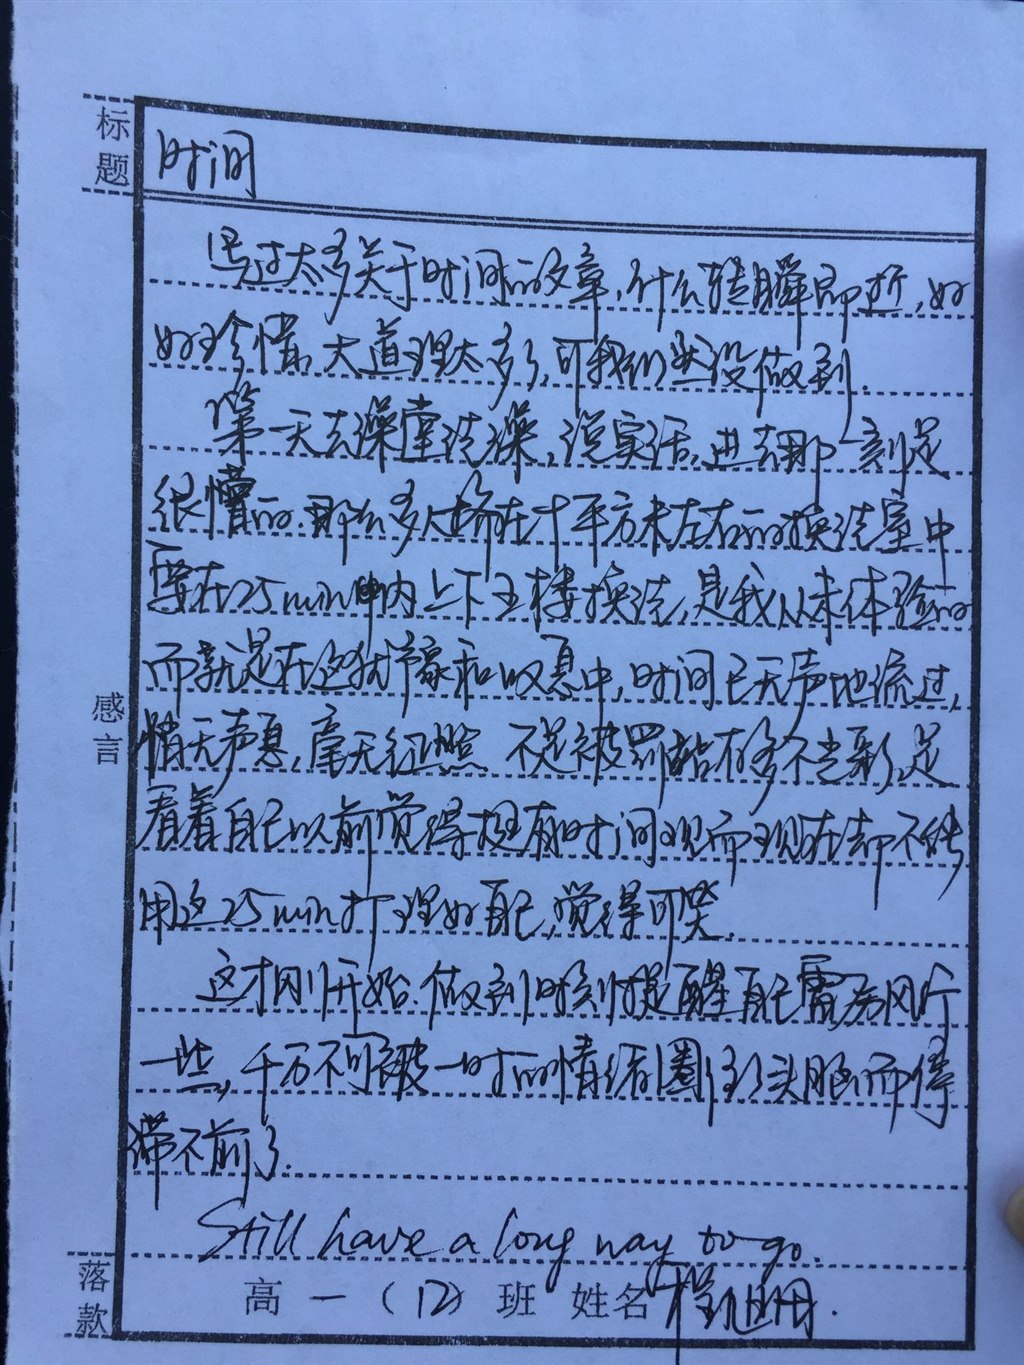 标题
时间
写过太多关于时间的文章，什么转瞬即逝，好
好珍惜，大道理太多了，可我们还没做到.
第一天去澡堂洗澡，说实话，进去那一刻是
很懵的.那么多人挤在十平方米左右的换洗室中
要在25min内上下五楼换洗，是我从未体验的
而就是在这犹豫和叹息中，时间已无声地流过，
悄无声息，毫无征照 不是被罚站有多不光彩，是
看着自己以前觉得挺有时间观而现在却不能
用这25min打理好自己，觉得可笑.
这才刚开始.做到时刻提醒自己雷厉风行
一些，千万不可被一时的情绪圈住头脑而停
滞不前了.
Still have a long way to go.
感言
落款
高一（12）班 姓名